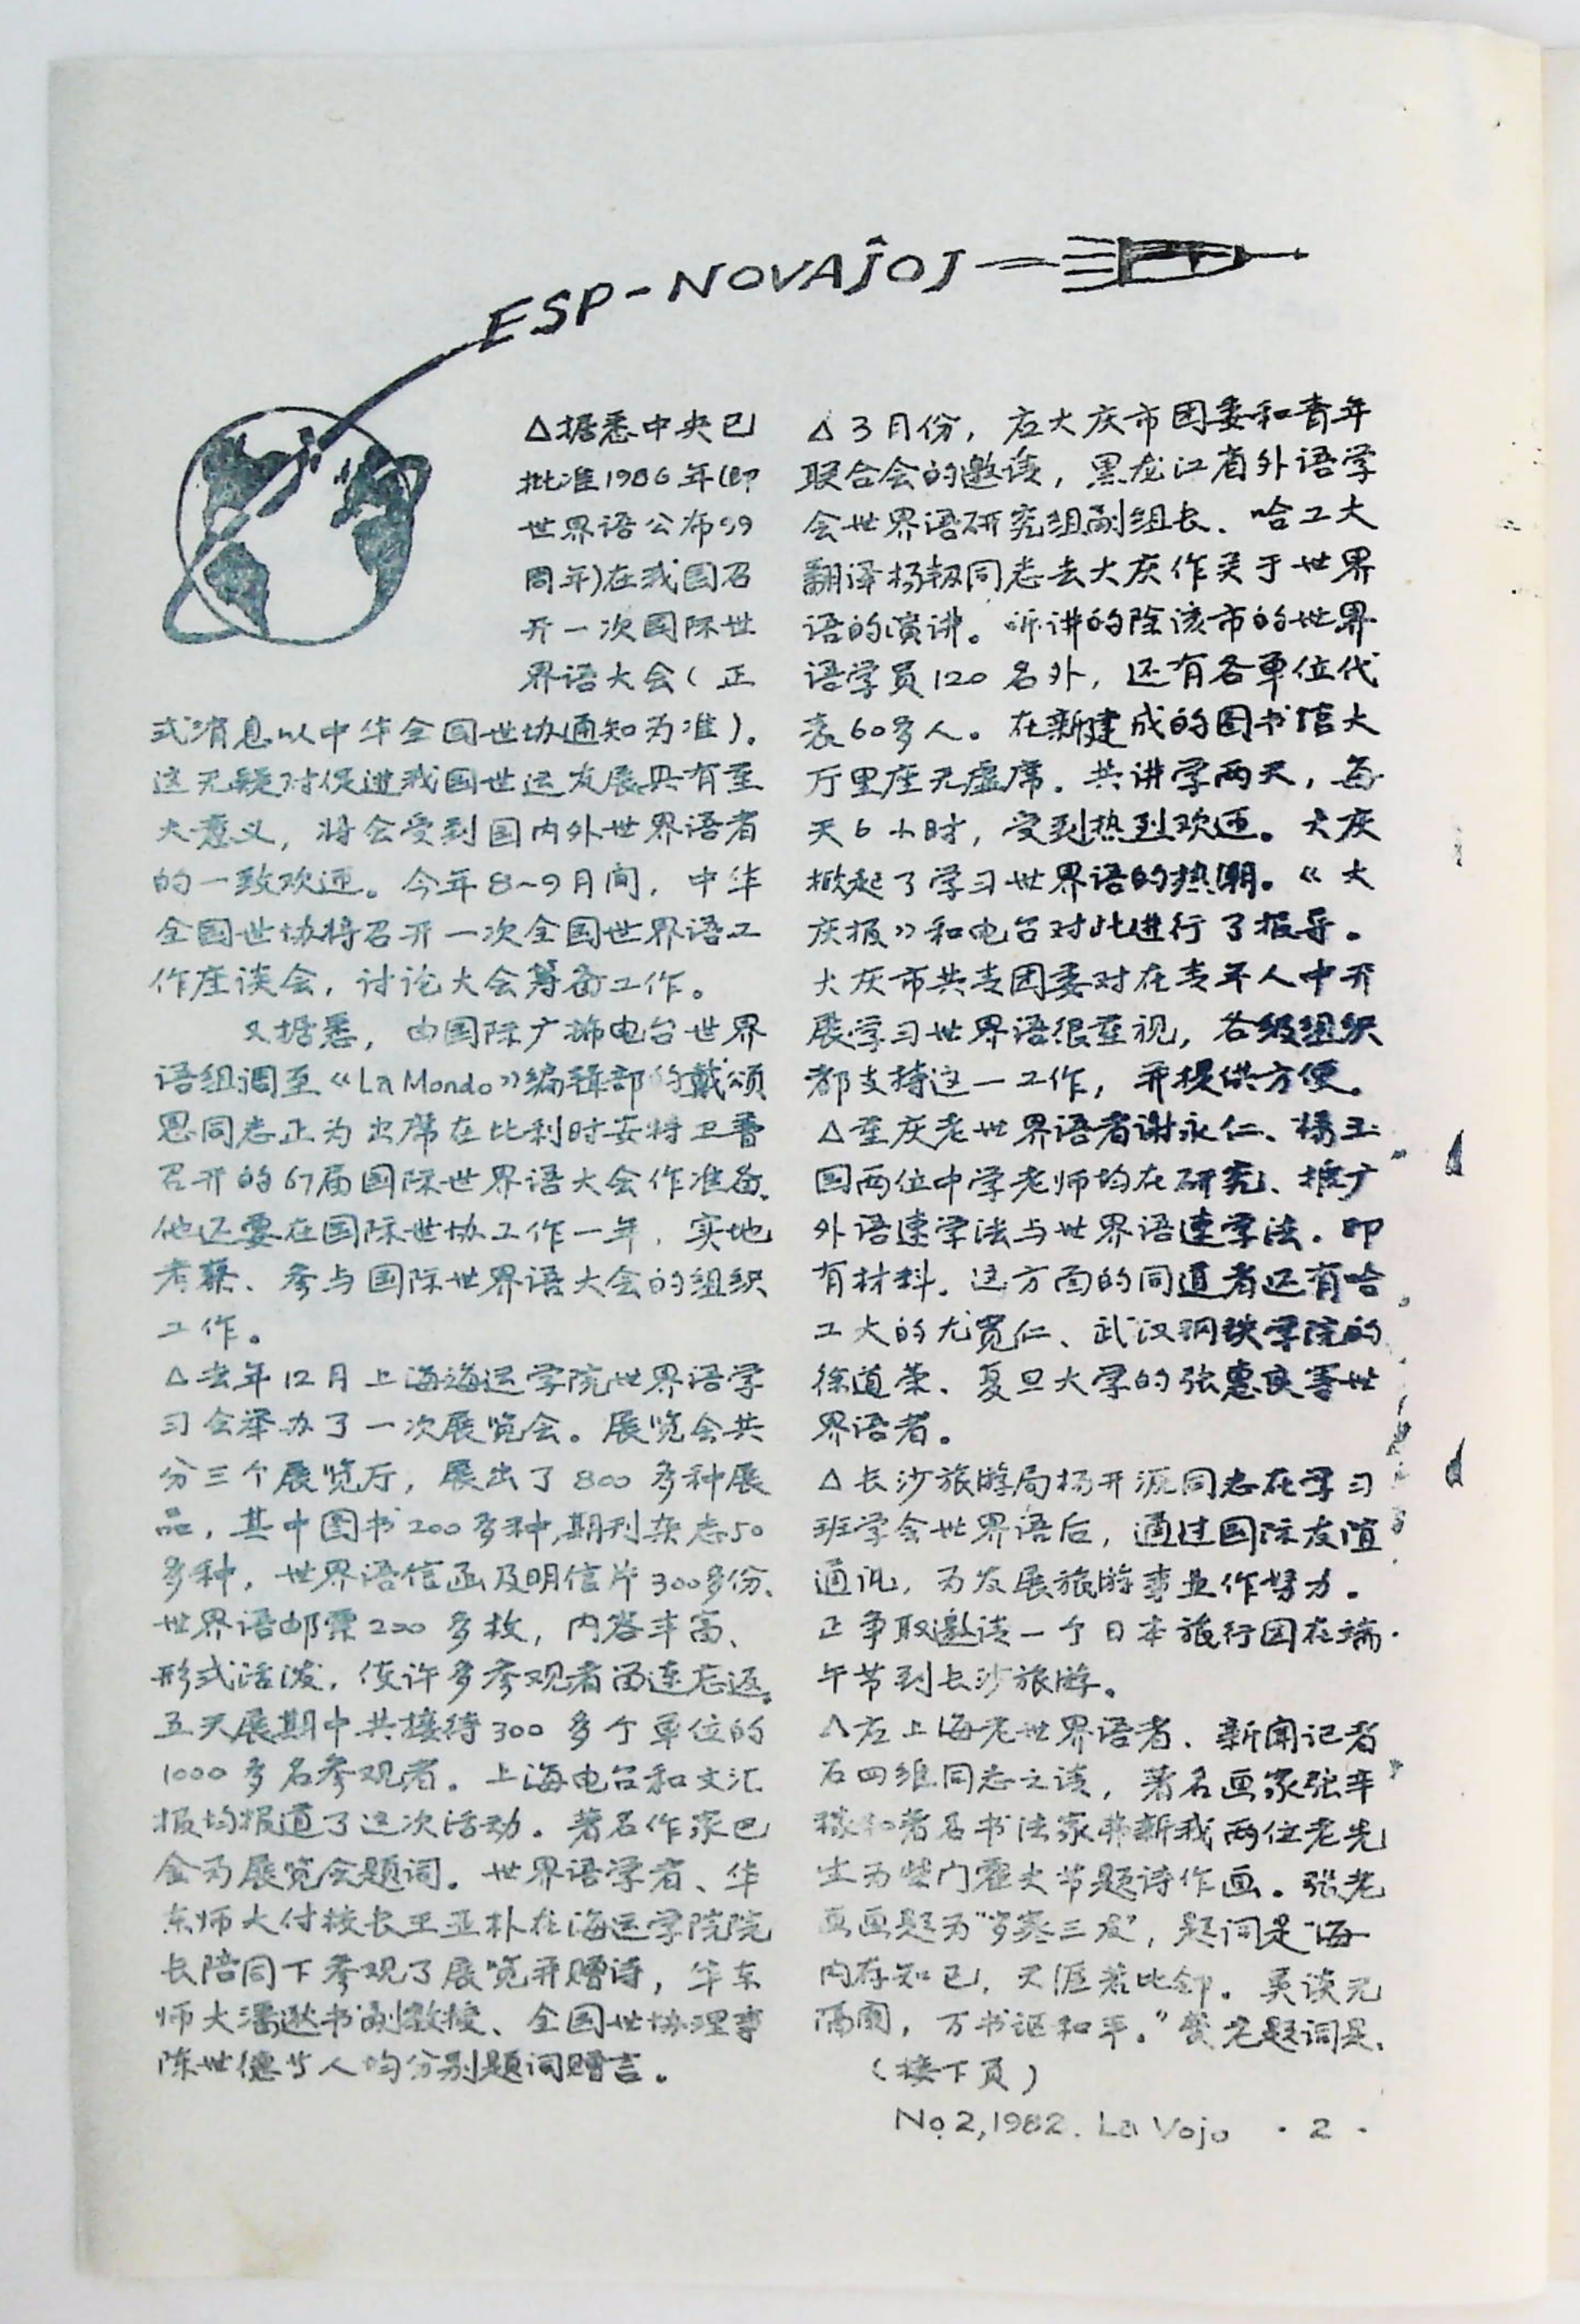 ESP-NOVAĴOJ
△据悉中央已
批准1986年(即
世界语公布99
周年)在我国召
开一次国际世
界语大会(正
式消息以中华全国世协通知为准)。
这无疑对促进我国世运发展具有至
大意义，将会受到国内外世界语者
的一致欢迎。今年8~9月间，中华
全国世协将召开一次全国世界语工
作座谈会，讨论大会筹备工作。
又据悉，由国际广播电台世界
语组调至《La Mondo》编辑部的戴颂
恩同志正为出席在比利时安特卫普
召开的67届国际世界语大会作准备。
他还要在国际世协工作一年，实地
考察、参与国际世界语大会的组织
工作。
△去年12月上海海运学院世界语学
习会举办了一次展览会。展览会共
分三个展览厅，展出了800多种展
品，其中图书200多种，期刊杂志50
多种，世界语信函及明信片300多份、
世界语邮票200多枚，内容丰富、
形式活泼，使许多参观者留连忘返。
五天展期中共接待300多个单位的
1000多名参观者。上海电台和文汇
报均报道了这次活动。著名作家巴
金为展览会题词。世界语学者、华
东师大付校长王亚朴在海运学院院
长陪同下参观了展览并赠诗，华东
师大潘逖书副教授、全国世协理事
陈世德等人均分别题词赠言。
△3月份，应大庆市团委和青年
联合会的邀请，黑龙江省外语学
会世界语研究组副组长、哈工大
翻译杨毅同志去大庆作关于世界
语的演讲。听讲的除该市的世界
语学员120名外，还有各单位代
表60多人。在新建成的图书馆大
厅里座无虚席。共讲学两天，每
天6小时，受到热烈欢迎。大庆
掀起了学习世界语的热潮。《大
庆报》和电台对此进行了报导。
大庆市共青团委对在青年人中开
展学习世界语很重视，各级组织
都支持这一工作，并提供方便。
△重庆老世界语者谢永仁、杨玉
国两位中学老师均在研究、推广
外语速学法与世界语速学法。印
有材料。这方面的同道者还有哈
工大的尤宽仁、武汉钢铁学院的
徐道荣、复旦大学的张惠良等世
界语者。
△长沙旅游局杨开源同志在学习
班学会世界语后，通过国际友谊
通讯，为发展旅游事业作努力。
正争取邀请一个日本旅行团在端
午节到长沙旅游。
△应上海老世界语者、新闻记者
石四维同志之请，著名画家张辛
稼和著名书法家费新我两位老先
生为柴门霍夫节题诗作画。张老
画画题为"岁寒三友"，题词是"海
内存知已，天涯若比邻。奥谈无
隔阂，万书讴和平。"费老题词是：
(接下页)
No.2,1982. La Vojo ·2·